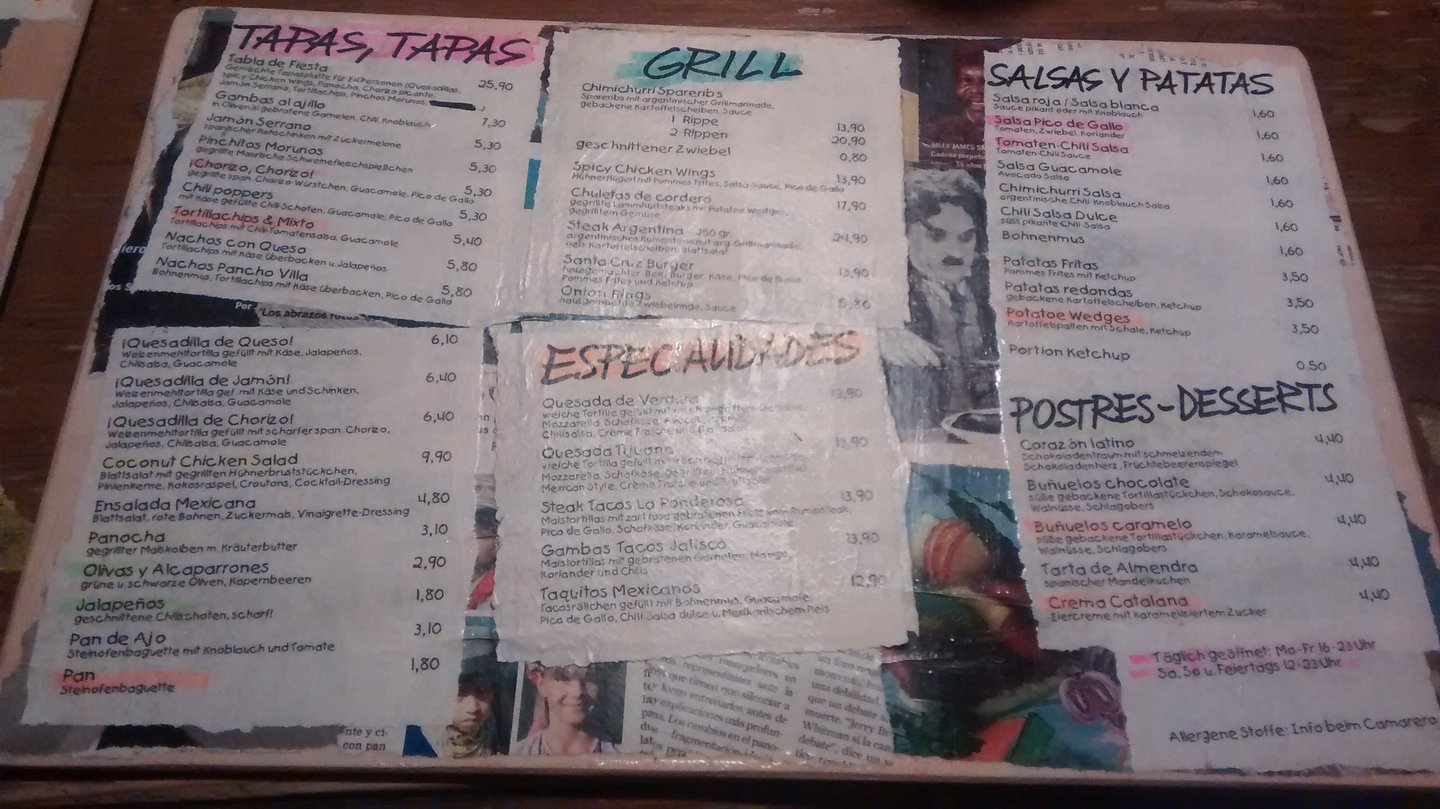 TAPAS, TAPAS
Tabla de Fiesta 25,90
Gemischte Tapasplatte für 3-4 Personen (Quesadillas,
Spicy Chicken Wings, Panocha, Chorizo picante,
Jamón Serrano, Tortillachips, Pinchos Morunos,
Gambas al ajillo 7,30
in Olivenöl gebratene Garnelen, Chili, Knoblauch
Jamón Serrano 5,30
spanischer Rohschinken mit Zuckermelone
Pinchitos Morunos 5,30
gegrillte Maurische Schweinefleischspießchen
¡Chorizo, Chorizo! 5,30
gegrillte span. Chorizo-Würstchen, Guacamole, Pico de Gallo
Chili poppers 5,30
mit Käse gefüllte Chili-Schoten, Guacamole, Pico de Gallo
Tortillachips & Mixto 5,40
Tortillachips mit Chili-Tomatensalsa, Guacamole
Nachos con Queso 5,80
Tortillachips mit Käse überbacken u. Jalapeños
Nachos Pancho Villa 5,80
Bohnenmus, Tortillachips mit Käse überbacken, Pico de Gallo
Por
'Los abrazos rotos
¡Quesadilla de Queso! 6,10
Weizenmehltortilla gefüllt mit Käse, Jalapeños,
Chilisalsa, Guacamole
¡Quesadilla de Jamón! 6,40
Weizenmehltortilla gef. mit Käse und Schinken,
Jalapeños, Chilisalsa, Guacamole
¡Quesadilla de Chorizo! 6,40
Weizenmehltortilla gefüllt mit scharfer span. Chorizo,
Jalapeños, Chilisalsa, Guacamole
Coconut Chicken Salad 9,90
Blattsalat mit gegrillten Hühnerbruststückchen,
Pinienkerne, Kokosraspel, Croutons, Cocktail-Dressing
Ensalada Mexicana 4,80
Blattsalat, rote Bohnen, Zuckermais, Vinaigrette-Dressing
Panocha 3,10
gegrillter Maiskolben m. Kräuterbutter
Olivas y Alcaparrones 2,90
grüne u. schwarze Oliven, Kapernbeeren
Jalapeños 1,80
geschnittene Chilischoten, scharf!
Pan de Ajo 3,10
Steinofenbaguette mit Knoblauch und Tomate
Pan 1,80
Steinofenbaguette
GRILL
Chimichurri Spareribs
Spareribs mit argentinischer Grillmarinade,
gebackene Kartoffelscheiben, Sauce
1 Rippe 13,90
2 Rippen 20,90
geschnittener Zwiebel 0,80
Spicy Chicken Wings 13,90
Hühnerflügerl mit Pommes Frites, Salsa Sauce, Pico de Gallo
Chuletas de cordero 17,90
gegrillte Lammhüftsteaks mit Potatoe Wedges,
gegrilltem Gemüse
Steak Argentina 350 gr 24,90
argentinisches Rumpsteak mit arg. Grillmarinade,
geb. Kartoffelscheiben, Blattsalat
Santa Cruz Burger 13,90
hausgemachter Beef Burger, Käse, Pico de Gallo
Pommes Frites und Ketchup
Onion Rings
hausgemachte Zwiebelringe, Sauce
ESPECIALIDADES
Quesada de Verdura 13,90
weiche Tortilla gefüllt mit frisch gegrilltem Gemüse,
Mozzarella, Schafkäse,
Chilisalsa, Crème Fraîche und Blattsalat
Quesada Tijuana 13,90
weiche Tortilla gefüllt mit
Mozzarella, Schafkäse, gegrilltes
Mexican Style, Crème Fraîche und Blattsalat
Steak Tacos La Ponderosa 13,90
Maistortillas mit zart rosa gebratenen Filetz vom Rumpsteak,
Pico de Gallo, Schafkäse, Koriander, Guacamole
Gambas Tacos Jalisco 13,90
Maistortillas mit gebratenen Garnelen, Mango,
Koriander und Chilis
Taquitos Mexicanos 12,90
Tacoröllchen gefüllt mit Bohnenmus, Guacamole
Pico de Gallo, Chili Salsa dulce u. Mexikanischem Reis
SALSAS Y PATATAS
Salsa roja / Salsa blanca 1,60
Sauce pikant oder mit Knoblauch
Salsa Pico de Gallo 1,60
Tomaten, Zwiebel, Koriander
Tomaten-Chili Salsa 1,60
Tomaten-Chili Sauce
Salsa Guacamole 1,60
Avocado Salsa
Chimichurri Salsa 1,60
argentinische Chili Knoblauch Salsa
Chili Salsa Dulce 1,60
süss pikante Chili Salsa
Bohnenmus 1,60
Patatas Fritas 3,50
Pommes Frites mit Ketchup
Patatas redondas 3,50
gebackene Kartoffelscheiben, Ketchup
Potatoe Wedges 3,50
Kartoffelspalten mit Schale, Ketchup
Portion Ketchup 0.50
POSTRES-DESSERTS
Corazón latino 4,40
Schokoladentraum mit schmelzendem
Schokoladenherz, Früchtebeerenspiegel
Buñuelos chocolate 4,40
süße gebackene Tortillastückchen, Schokosauce,
Walnüsse, Schlagobers
Buñuelos caramelo 4,40
süße gebackene Tortillastückchen, Karamelsauce,
Walnüsse, Schlagobers
Tarta de Almendra 4,40
spanischer Mandelkuchen
Crema Catalana 4,40
Eiercreme mit karamelisiertem Zucker
Täglich geöffnet: Mo-Fr 16-23 Uhr
Sa, So u. Feiertags 12-23 Uhr
Allergene Stoffe: Info beim Camarero
nte y ci-
con pan
que tienen que silenciar a
luego entrenarlos antes de
las explicaciones más profun-
das. Los cambios en el pano-
fragmentación
una debilidad.
que un debate
muerte. "Jerry
Whitman si la can
debate", dice un